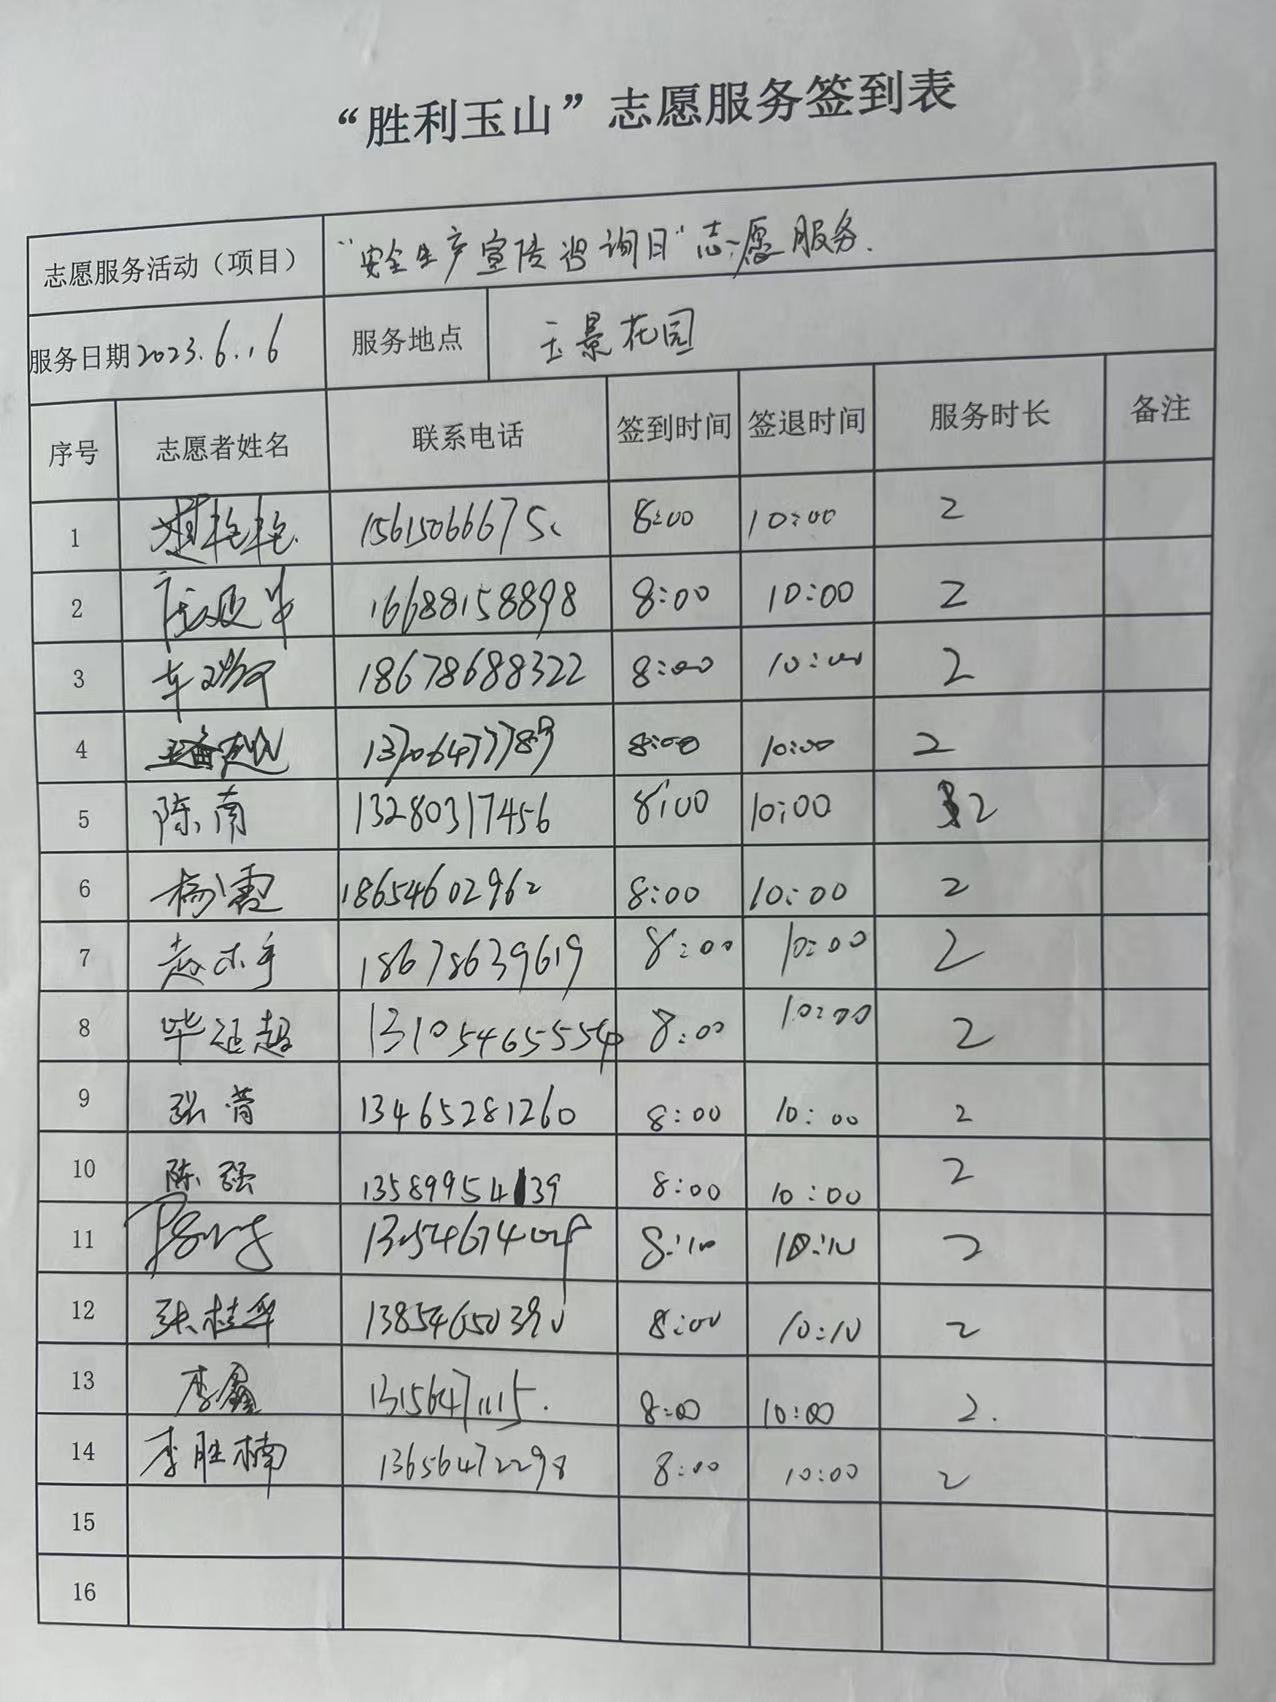 “胜利玉山”志愿服务签到表
志愿服务活动（项目） “安全生产宣传咨询日”志愿服务.
服务日期 2023.6.16 服务地点 玉景花园
序号 志愿者姓名 联系电话 签到时间 签退时间 服务时长 备注
1 15615066675 8:00 10:00 2
2 16688158898 8:00 10:00 2
3 18678688322 8:00 10:00 2
4 13706477789 8:00 10:00 2
5 陈南 13280317456 8:00 10:00 2
6 杨霞 18654602962 8:00 10:00 2
7 18678639619 8:00 10:00 2
8 毕延超 13105465554 8:00 10:00 2
9 张菁 13465281260 8:00 10:00 2
10 陈强 13589954139 8:00 10:00 2
11 8:10 10:10 2
12 张桂华 13854650390 8:00 10:10 2
13 李鑫 13156471115. 8:00 10:00 2.
14 李胜楠 13656472298 8:00 10:00 2
15
16